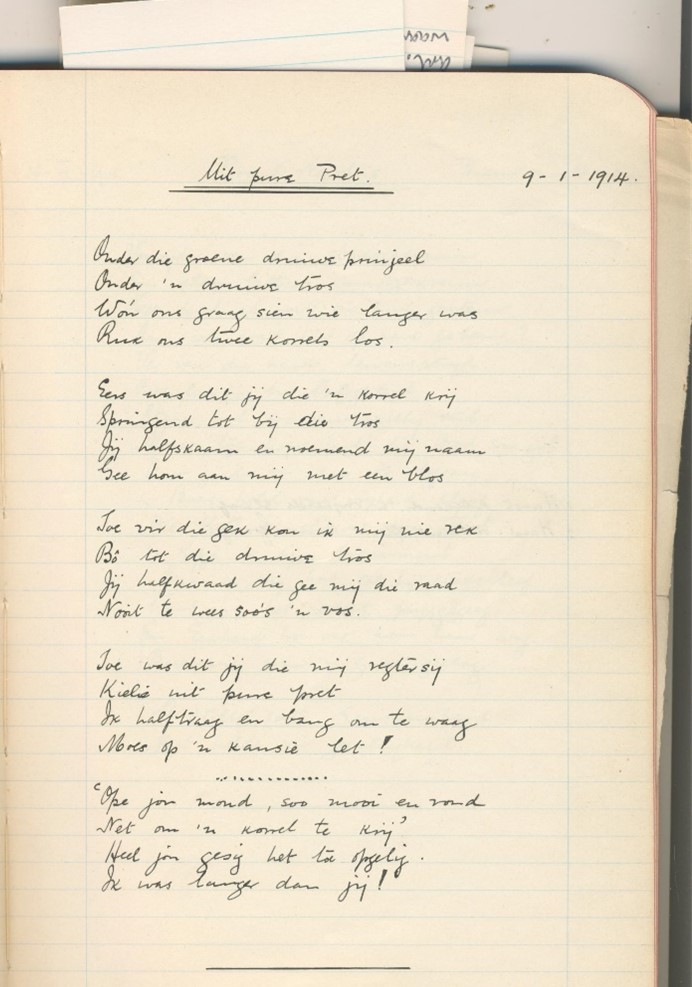 Uit pure Pret.
9-1-1914.
Onder die groene druiwe prinjeel
Onder 'n druiwe tros
Wou ons graag sien wie langer was
Ruk ons twee korrels los.
Eers was dit jij die 'n korrel krij
Springend tot bij die tros
Jij halfskaam en noemend mij naam
Gee hom aan mij met een blos
Toe vir die gek kon ik mij nie rek
Bô tot die druiwe tros
Jij halfkwaad die gee mij die raad
Nooit te wees soo's 'n vos.
Toe was dit jij die mij regtersij
Kielie uit pure pret
Ik halftraag en bang om te waag
Moes op 'n kansie let!
"Ope jou mond, soo mooi en rond
Net om 'n korrel te krij"
Heel jou gesig het toe opgelig.
Ik was langer dan jij!